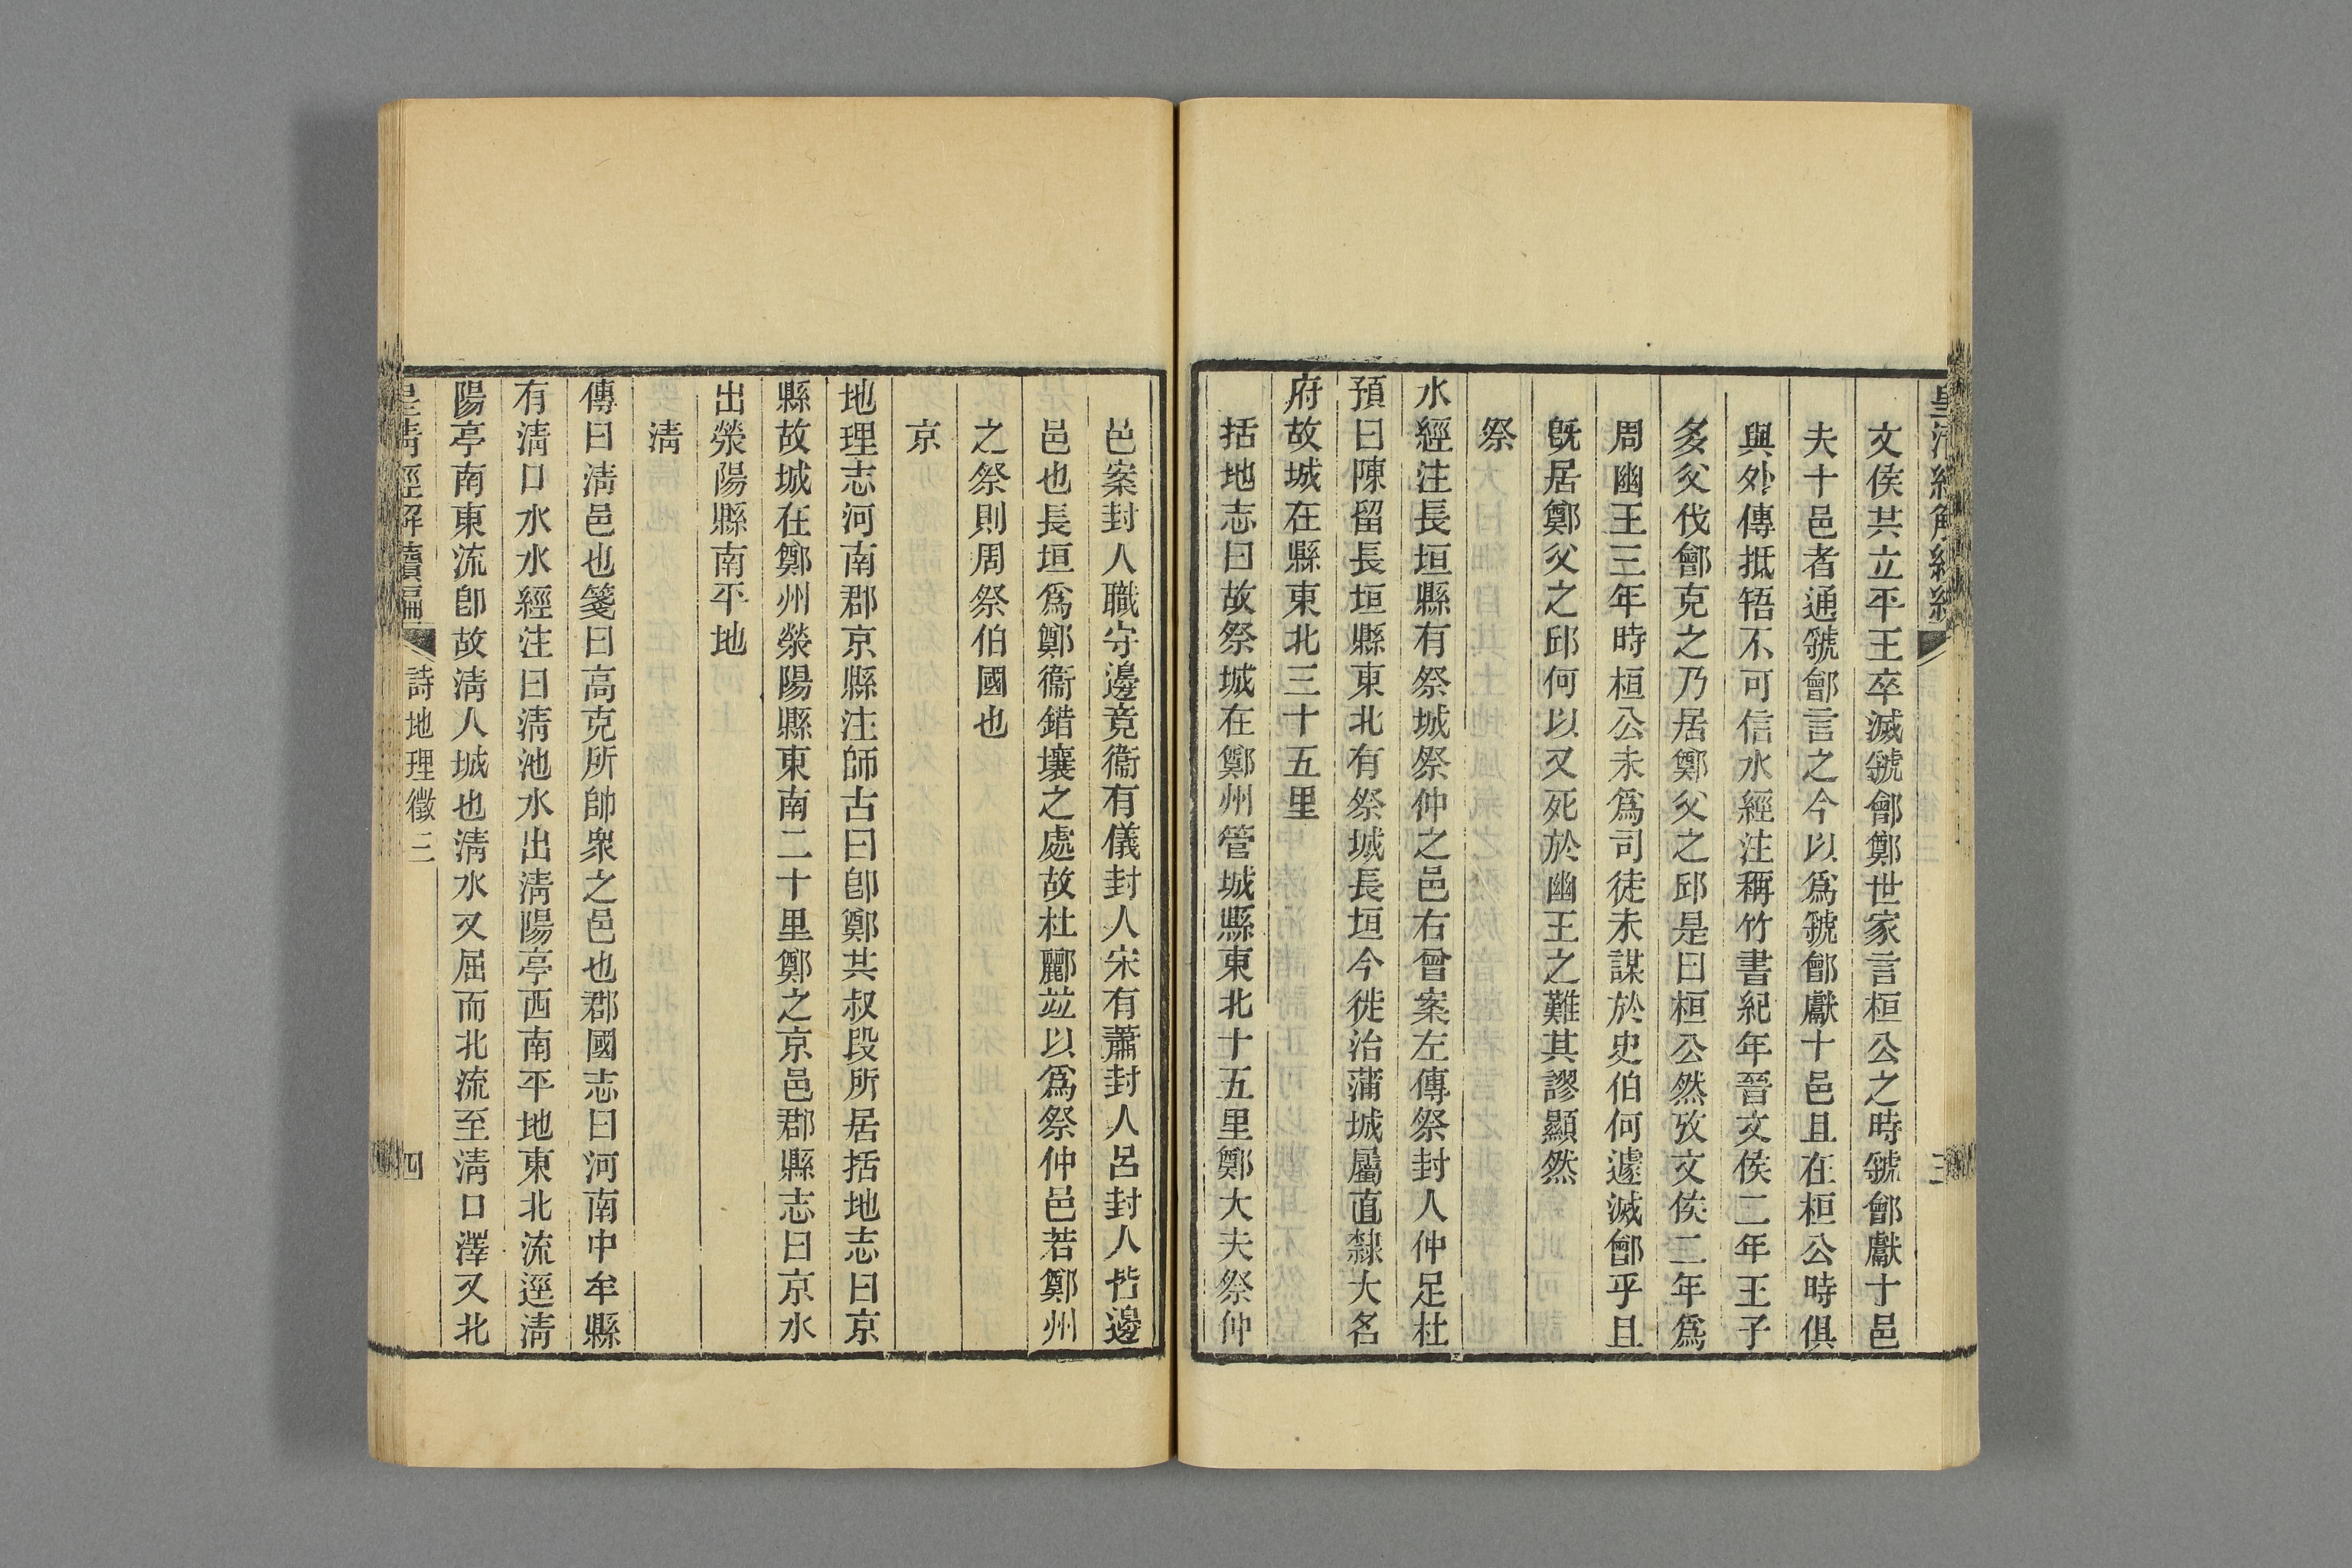 文侯共立平王卒滅虢鄶鄭世家言桓公之時虢鄶獻十邑
夫十邑者通虢鄶言之今以爲虢鄶獻十邑且在桓公時俱
與外傳抵牾不可信水經注稱竹書紀年晉文侯二年王子
多父伐鄶克之乃居鄭父之邱是曰桓公然攷文侯二年爲
周幽王三年時桓公未爲司徒未謀於史伯何遽滅鄶乎且
旣居鄭父之邱何以又死於幽王之難其謬顯然
祭
水經注長垣縣有祭城祭仲之邑右曾案左傳祭封人仲足杜
預曰陳留長垣縣東北有祭城長垣今徙治蒲城屬直隸大名
府故城在縣東北三十五里
括地志曰故祭城在鄭州管城縣東北十五里鄭大夫祭仲
邑案封人職守邊竟衞有儀封人宋有蕭封人呂封人皆邊
邑也長垣爲鄭衞錯壤之處故杜酈竝以爲祭仲邑若鄭州
之祭則周祭伯國也
京
地理志河南郡京縣注師古曰卽鄭共叔段所居括地志曰京
縣故城在鄭州滎陽縣東南二十里鄭之京邑郡縣志曰京水
出滎陽縣南平地
淸
傳曰淸邑也箋曰高克所帥衆之邑也郡國志曰河南中牟縣
有淸口水水經注曰淸池水出淸陽亭西南平地東北流逕淸
陽亭南東流卽故淸人城也淸水又屈而北流至淸口澤又北
皇淸經解續編 詩地理徵三 四